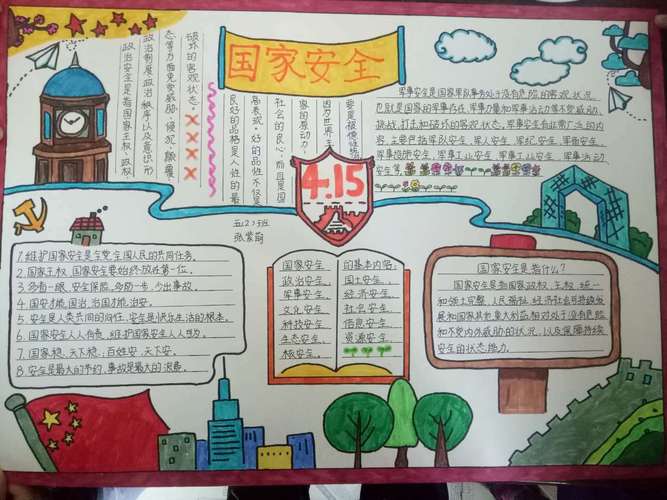 国家安全
政治安全是指国家主权、政权、
政治制度、政治秩序以及意识形
态等方面免受威胁、侵犯、颠覆、
破坏的客观状态。
军事安全是国家军队事务处于没有危险的客观状况,
也就是国家的军事存在、军事力量和军事活动等不受威胁、
挑战、打击和破坏的客观状态。军事安全有非常广泛的内
容,主要包括军队安全、军人安全、军纪安全、军备安全、
军事设施安全、
军事活动
安全等。
4.15
五(2)班
1.维护国家安全是全党全国人民的共同任务。
2.国家主权、国家安全要始终放在第一位。
3.多看一眼,安全保险,多防一步,少出事故。
4.国安才能国治,治国才能治安。
5.安全是人类共同的向往,安全是快乐生活的根本。
6.国家安全人人有责,维护国家安全人人出力。
7.国家稳,天下稳;百姓安,天下安。
8.安全是最大的节约,事故是最大的浪费。
国家安全
政治安全、
军事安全、
文化安全、
科技安全、
生态安全、
核安全。
的基本内容:
国土安全、
经济安全、
社会安全、
信息安全、
资源安全、
国家安全是指什么?
国家安全是指国家政权、主权、统一
和领土完整、人民福祉、经济社会可持续发
展和国家其他重大利益相对处于没有危险
和不受内外威胁的状况,以及保障持续
安全的状态能力。